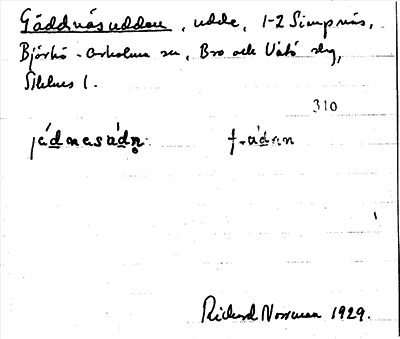 Gäddnäsudden, udde, 1-2 Simpnäs,
Björkö-Arholma sn, Bro och Vätö skg,
Sthlms l.
310
jádnasúdn̥ f. -údan
Rickard Norrman 1929.